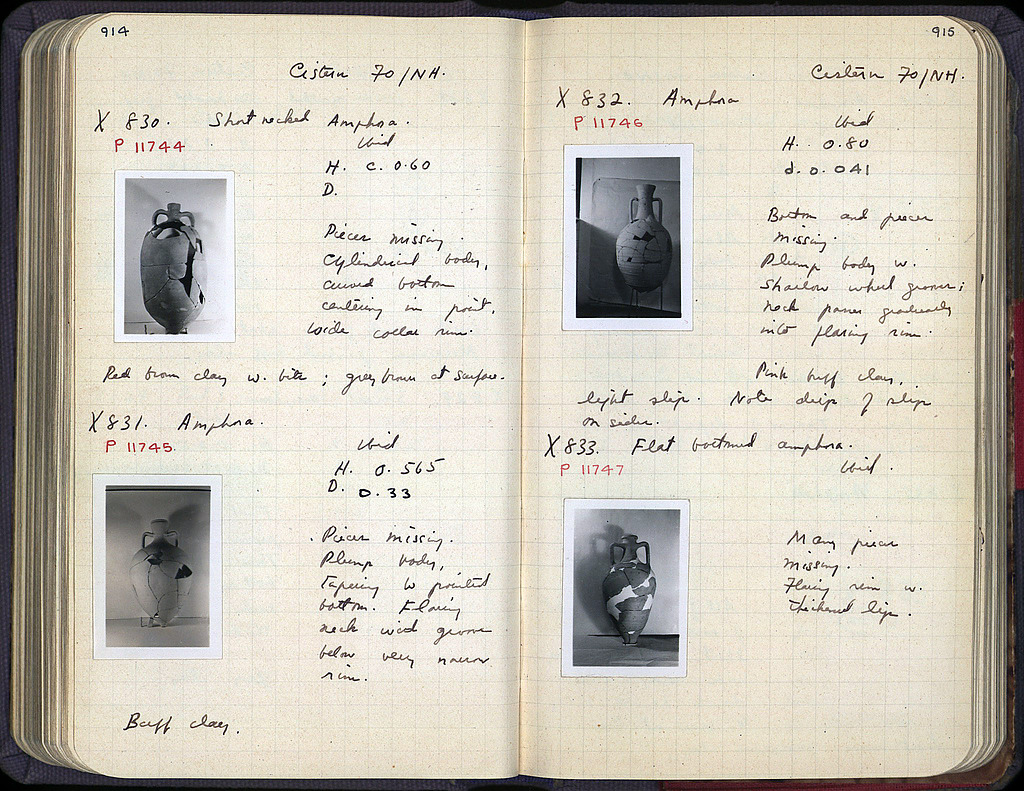 914
Cistern 70/NH.
X 830. Short necked Amphora.
P 11744
Ibid
H. c. 0.60
D.
Pieces missing.
Cylindrical body,
curved bottom
centering in point,
wide collar rim.
Red brown clay w. bits; grey brown at surface.
X 831. Amphora.
P 11745.
Ibid
H. 0.565
D. 0.33
Pieces missing.
Plump body,
tapering to pointed
bottom. Flaring
neck with groove
below very narrow
rim.
Buff clay.
915
Cistern 70/NH.
X 832. Amphora
P 11746
Ibid
H. 0.80
d. 0.041
Bottom and pieces
missing.
Plump body w.
shallow wheel grooves;
neck passes gradually
into flaring rim.
Pink buff clay,
light slip. Note drip of slip
on side.
X 833. Flat bottomed amphora.
P 11747
Ibid.
Many pieces
missing.
Flaring rim w.
thickened lip.